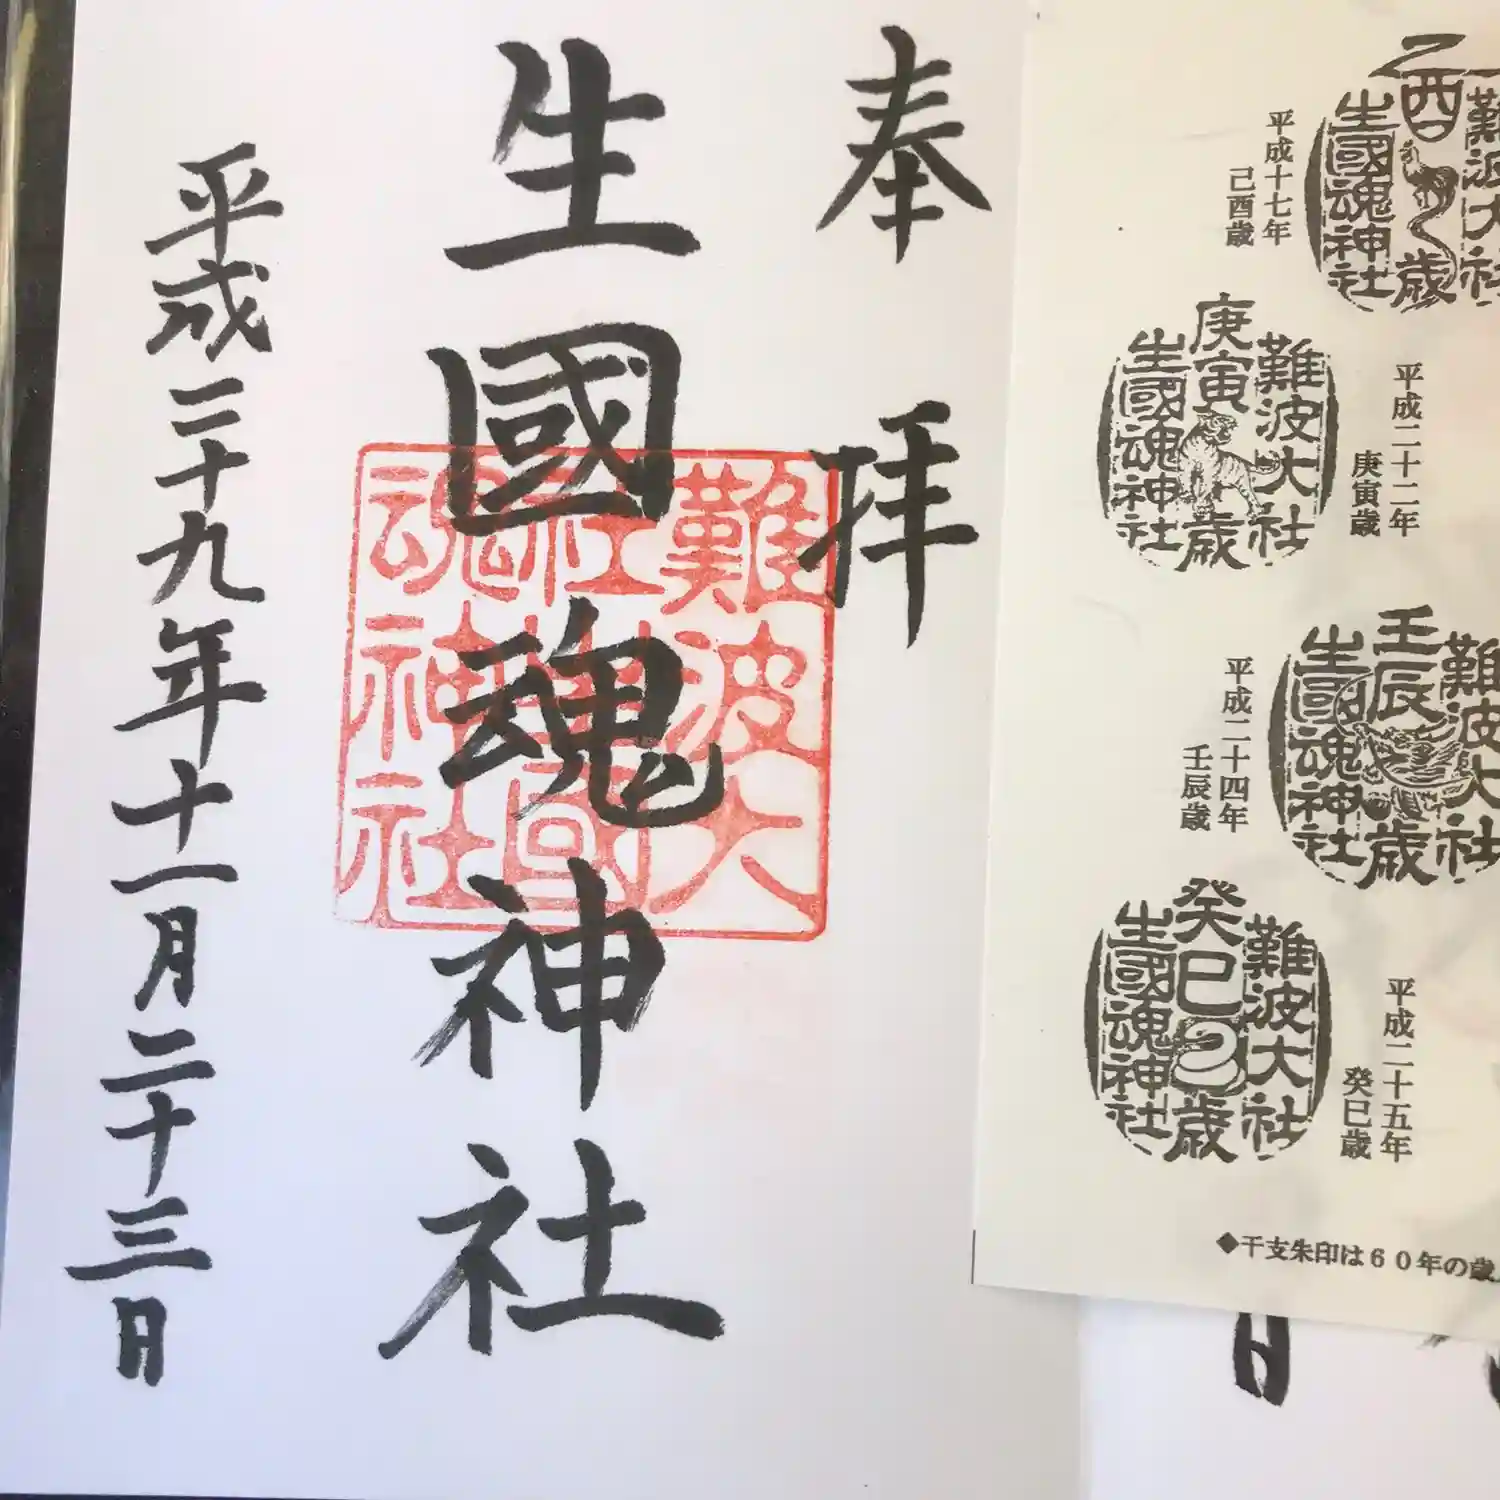 奉拝
生國魂神社
平成二十九年十一月二十三日
難波大
社生國
魂神社
難波大社
乙酉歳
生國魂神社
平成十七年
己酉歳
平成二十二年
庚寅歳
難波大社
庚寅歳
生國魂神社
難波大社
壬辰歳
生國魂神社
平成二十四年
壬辰歳
平成二十五年
癸巳歳
難波大社
癸巳歳
生國魂神社
◆干支朱印は６０年の歳
日